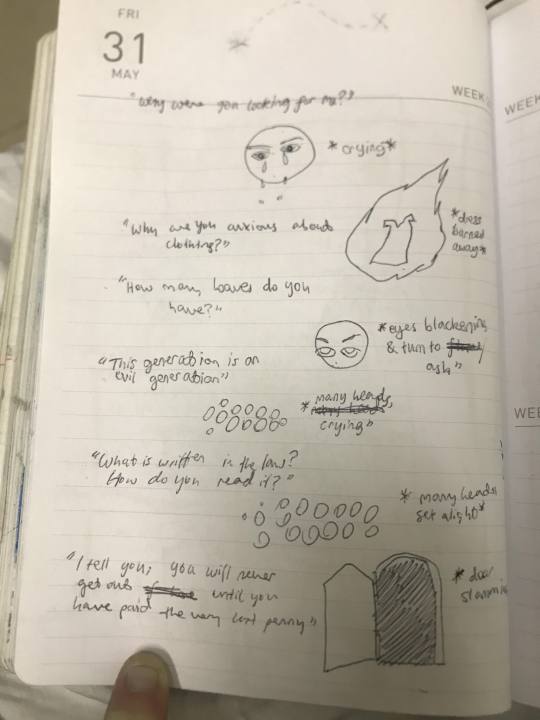 FRI
31
MAY
WEEK
WEEK
"Why were you looking for me?"
*crying*
"Why are you anxious about
clothing?"
*dress
burned
away*
"How many loaves do you
have?"
*eyes blackening
& turn to
ash"
"This generation is an
evil generation"
*many heads,
crying"
"What is written in the law?
How do you read it?"
*many heads
set alight*
"I tell you, you will never
get out until you
have paid the very last penny"
*door
WE